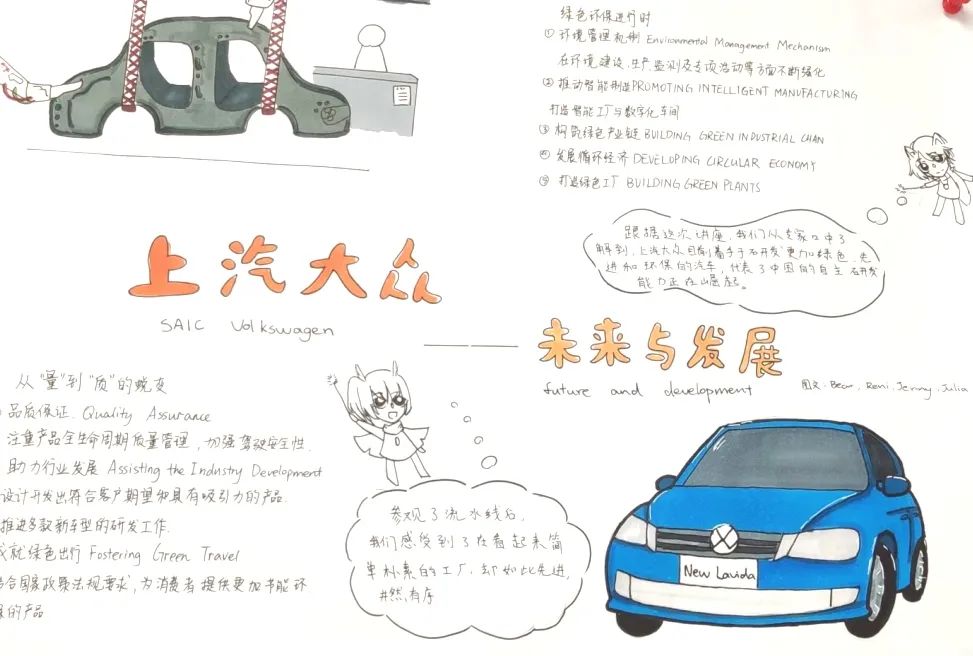 绿色环保进行时
① 环境管理机制 Environmental Management Mechanism
在环境建设、生产监测及专项活动等方面不断强化
② 推动智能制造PROMOTING INTELLIGENT MANUFACTURING
打造智能工厂与数字化车间
③ 构筑绿色产业链 BUILDING GREEN INDUSTRIAL CHAN
④ 发展循环经济 DEVELOPING CIRCULAR ECONOMY
⑤ 打造绿色工厂 BUILDING GREEN PLANTS
跟据这次讲座,我们从专家口中了
解到,上汽大众目前着手于研发更加绿色、先
进和环保的汽车,代表了中国的自主研发
能力正在崛起。
上汽大众
SAIC Volkswagen
未来与发展
future and development
图文:Bear, Reni, Jenny, Julia
从“量”到“质”的蜕变
品质保证 Quality Assurance
注重产品全生命周期质量管理,加强驾驶安全性.
助力行业发展 Assisting the Industry Development
设计开发出符合客户期望和具有吸引力的产品
推进多款新车型的研发工作.
成就绿色出行 Fostering Green Travel
合国家政策法规要求,为消费者提供更加节能环
保的产品
参观了流水线后,
我们感受到了在看起来简
单朴素的工厂,却如此先进,
井然有序
New Lavida